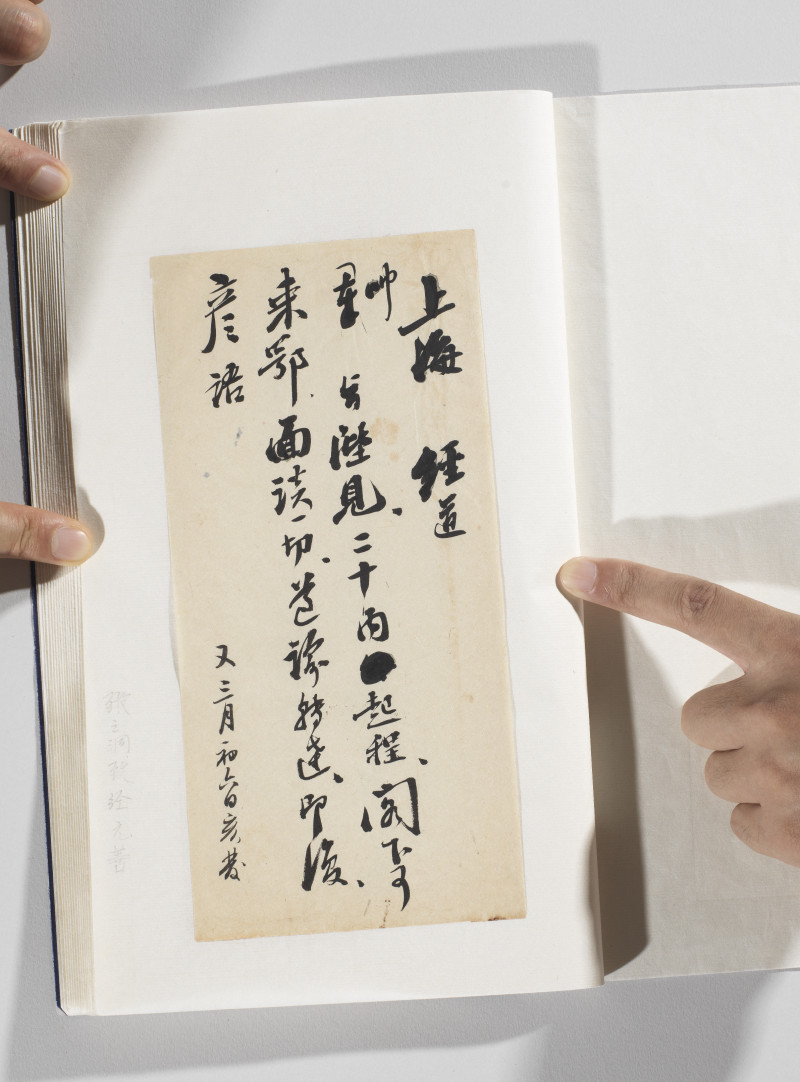 上海 經道
帥 召陛見、二十內起程、閣下可
來鄂面談一切、遵諭轉達、即復、
彥語
又三月初六日亥發
張之洞致经元善